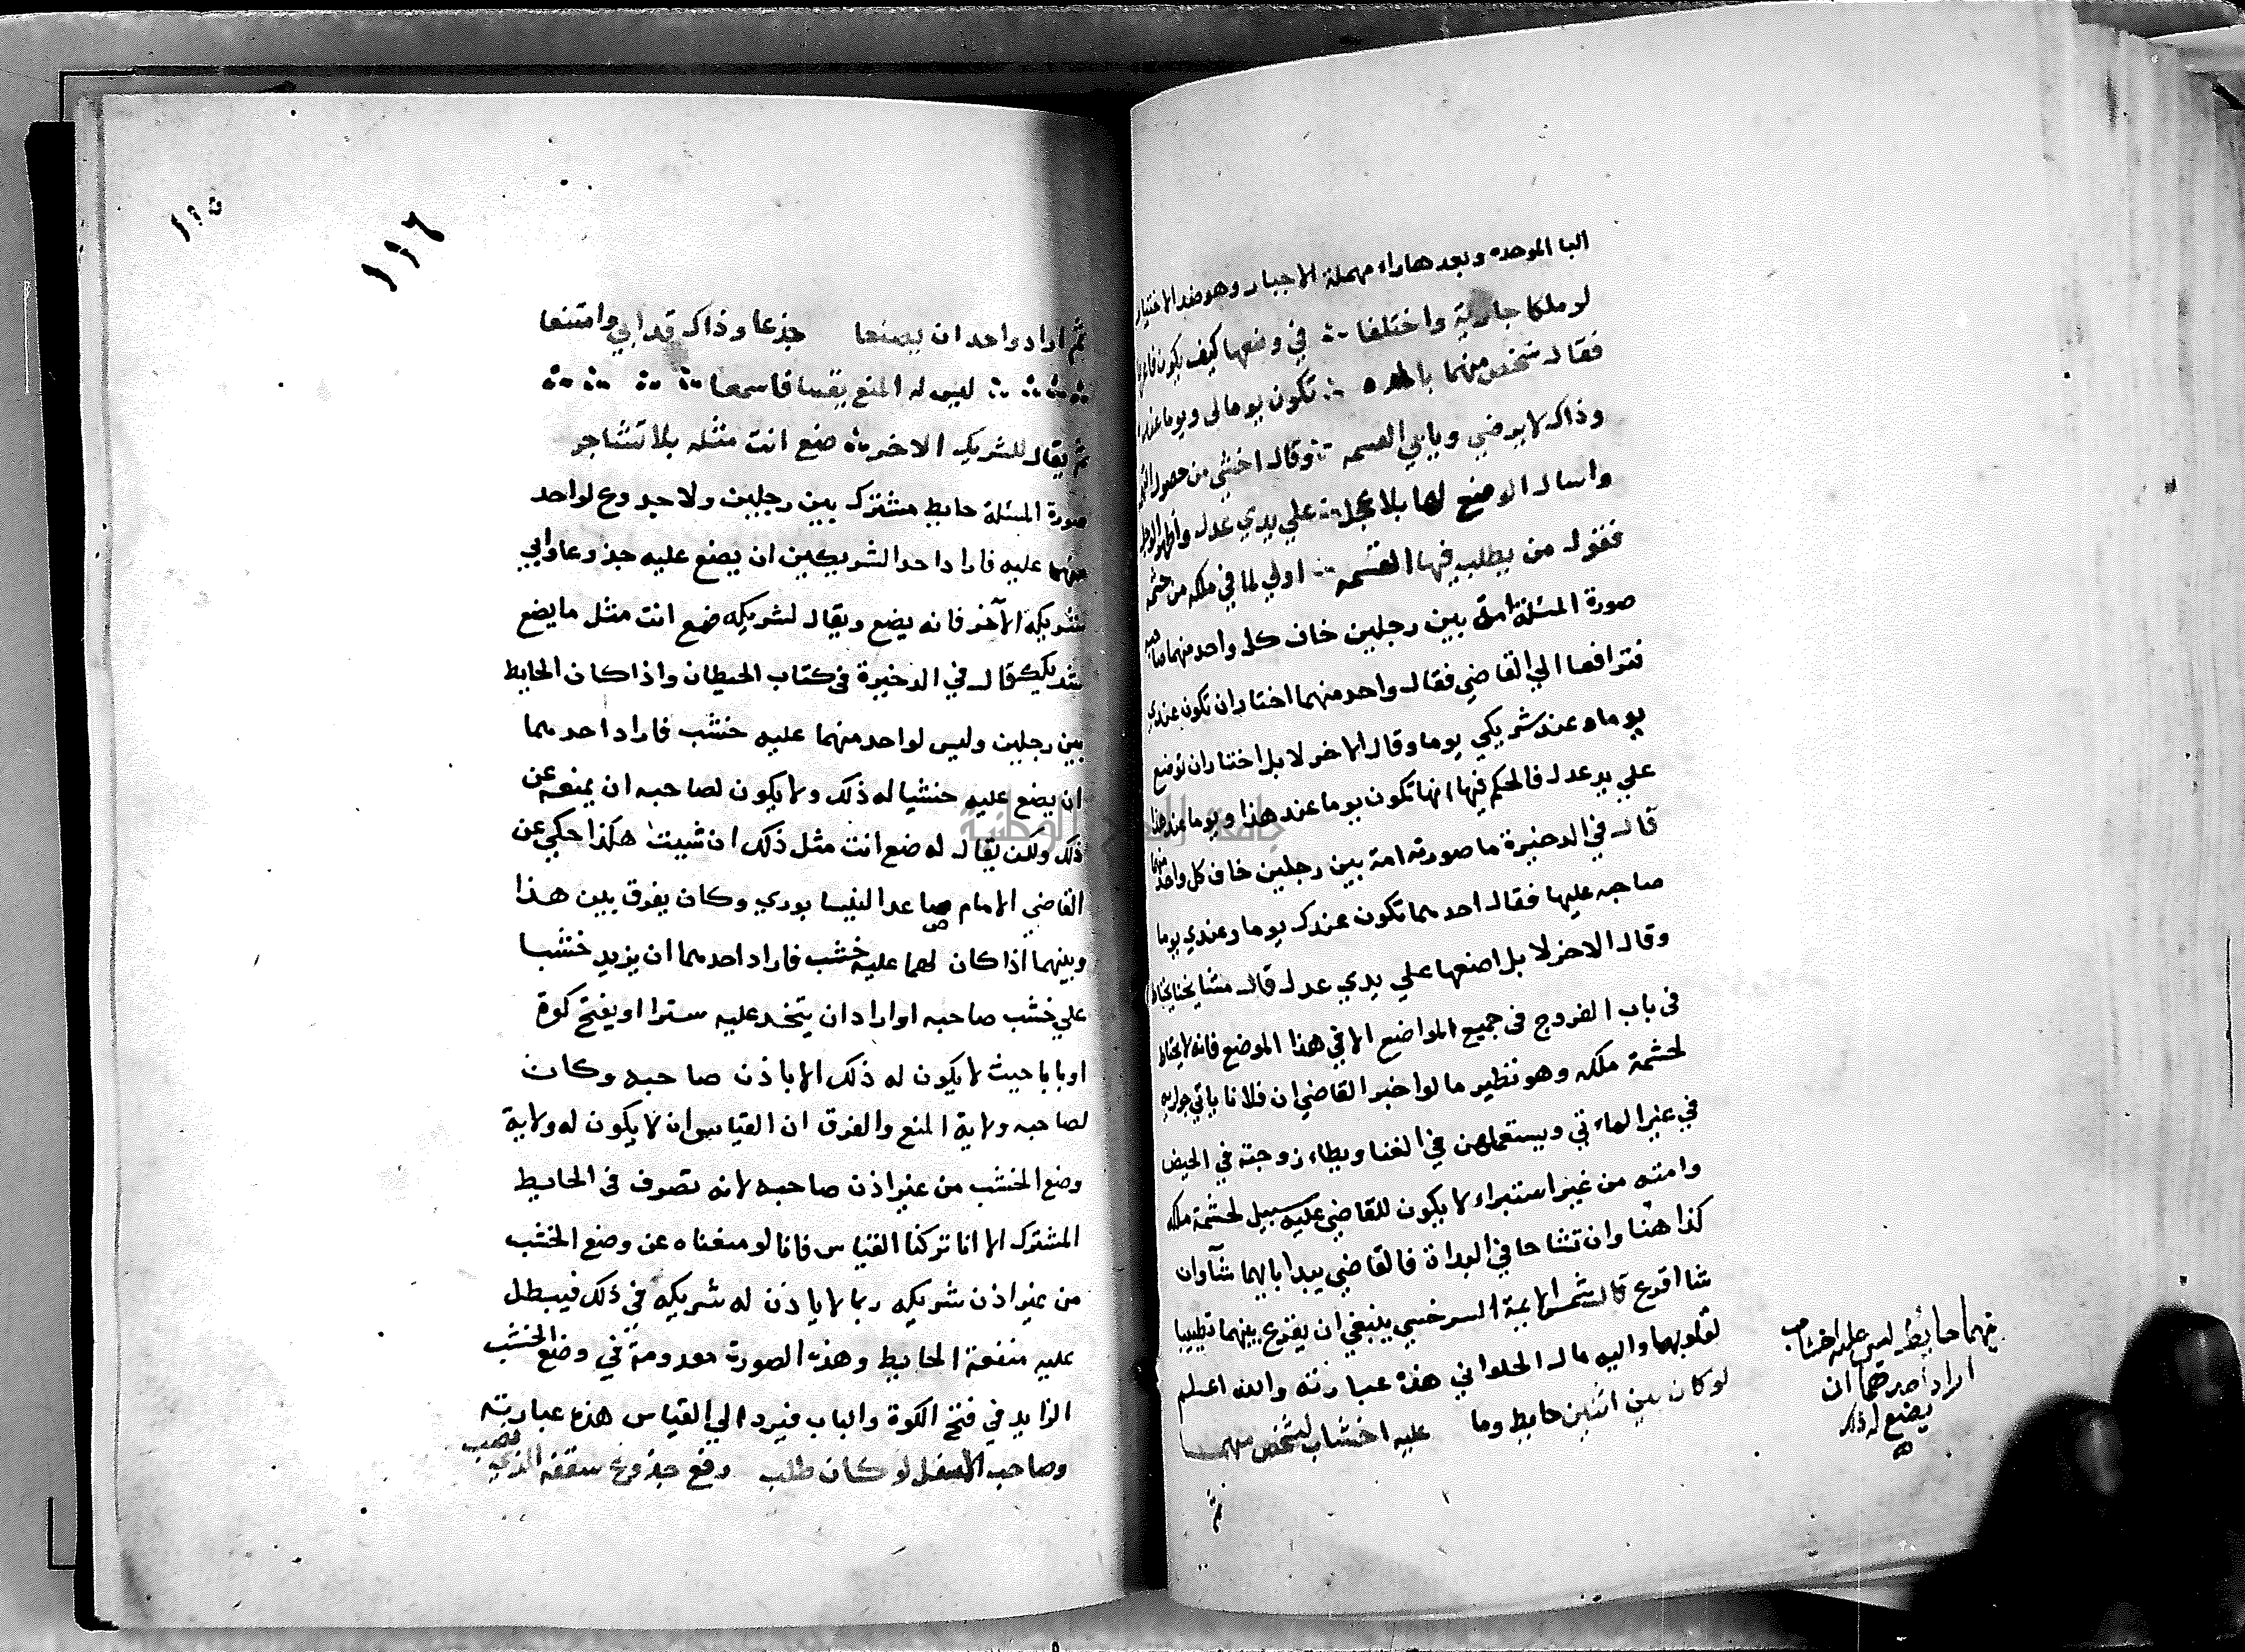 البا الموحده وبعدها راء مهملة الاجبار وهو ضد الاختيار
لو ملكا جارية واختلفا في وضعها كيف يكون
فقال شخص منهما تكون يوما لي ويوما عنده
وذاك لا يرضي ويابي القسمه وقال اخشي من حصول
واسال الوضع لها بلا علي يدي عدل
فقول من يطلب فيها القسمه اولي لما في ملكه من حشمه
صورة المسئلة امة بين رجلين خاف كل واحد منهما صاحبه
فترافعا الي القاضي فقال واحد منهما اختار ان تكون عندي
يوما وعند شريكي يوما وقال الاخر لا بل اختار ان توضع
علي يد عدل فالحكم فيها انها تكون يوما عند هذا ويوما عند هذا
قال في الدخيرة ما صورته امة بين رجلين خاف كل واحد منهما
صاحبه عليها فقال احدهما تكون عندك يوما وعندي يوما
وقال الاخر لا بل اضعها علي يدي عدل قال مشايخنا يحتاط
في باب الفروج في جميع المواضع الا في هذا الموضع فانه لا يحتاط
لحشمة ملكه وهو نظير ما لو اخبر القاضي ان فلانا ياتي جواريه
في غير الماتي ويستعملهن في الغنا ويطاء زوجته في الحيض
وامته من غير استبراء لا يكون للقاضي عليه سبيل لحشمة ملكه
كذا هنا وان تشاحا في البداة فالقاضي يبدا بايهما شآ وان
شا اقرع قال شمس الايمة السرخسي ينبغي ان يقرع بينهما تطييبا
لقلوبهما واليه مال الحلواني هذه عبارته والله اعلم
لو كان بين اثنين حايط وما عليه اخشاب لشخص منهما
ثم
حائط ليس عليه اخشاب
اراد احدهما ان
يضع له ذلك
١١٥
١١٦
ثم اراد واحد ان يصنعا جذعا وذاك قد ابي وامتنعا
ليس له المنع يقينا فاسمعا
ثم يقال للشريك الاخر ضع انت مثله بلا تشاجر
صورة المسئلة حايط مشترك بين رجلين ولا جدوع لواحد
منهما عليه فاراد احد الشريكين ان يضع عليه جذوعا وابي
شريكه الآخر فانه يضع ويقال لشريكه ضع انت مثل ما يضع
شريكك قال في الدخيرة في كتاب الحيطان واذا كان الحايط
بين رجلين وليس لواحد منهما عليه خشب فاراد احدهما
ان يضع عليه خشبا له ذلك ولا يكون لصاحبه ان يمنعه عن
ذلك ولكن يقال له ضع انت مثل ذلك ان شيت هكذا حكي عن
القاضي الامام صاعد النيسابوري وكان يفرق بين هذا
وبينهما اذا كان لهما عليه خشب فاراد احدهما ان يزيد خشبا
علي خشب صاحبه او اراد ان يتخد عليه سترا او يفتح كوة
او بابا حيث لا يكون له ذلك الا باذن صاحبه وكان
لصاحبه ولاية المنع والفرق ان القياس ان لا يكون له ولاية
وضع الخشب من غير اذن صاحبه لانه تصرف في الحايط
المشترك الا انا تركنا القياس فانا لو منعناه عن وضع الخشب
من غير اذن شريكه ربما لا ياذن له شريكه في ذلك فيبطل
عليه منفعة الحايط وهذه الصورت معدومة في وضع الخشب
الزايد في فتح الكوة والباب فيرد الي القياس هذه عبارته
وصاحب الاسفل لو كان طلب رفع جذوع سقفه الذي نصب